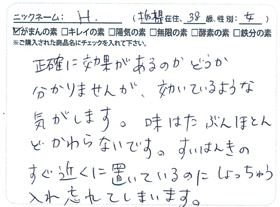 ニックネーム： H. （ 板橋 在住, 38 歳, 性別; 女 ）
☑がまんの素 □キレイの素 □陽気の素 □無限の素 □酵素の素 □鉄分の素
※ご購入された商品名にチェックを入れて下さい。
正確に効果があるのかどうか
分かりませんが、効いているような
気がします。味はたぶんほとん
どかわらないです。すいはんきの
すぐ近くに置いているのにしょっちゅう
入れ忘れてしまいます。